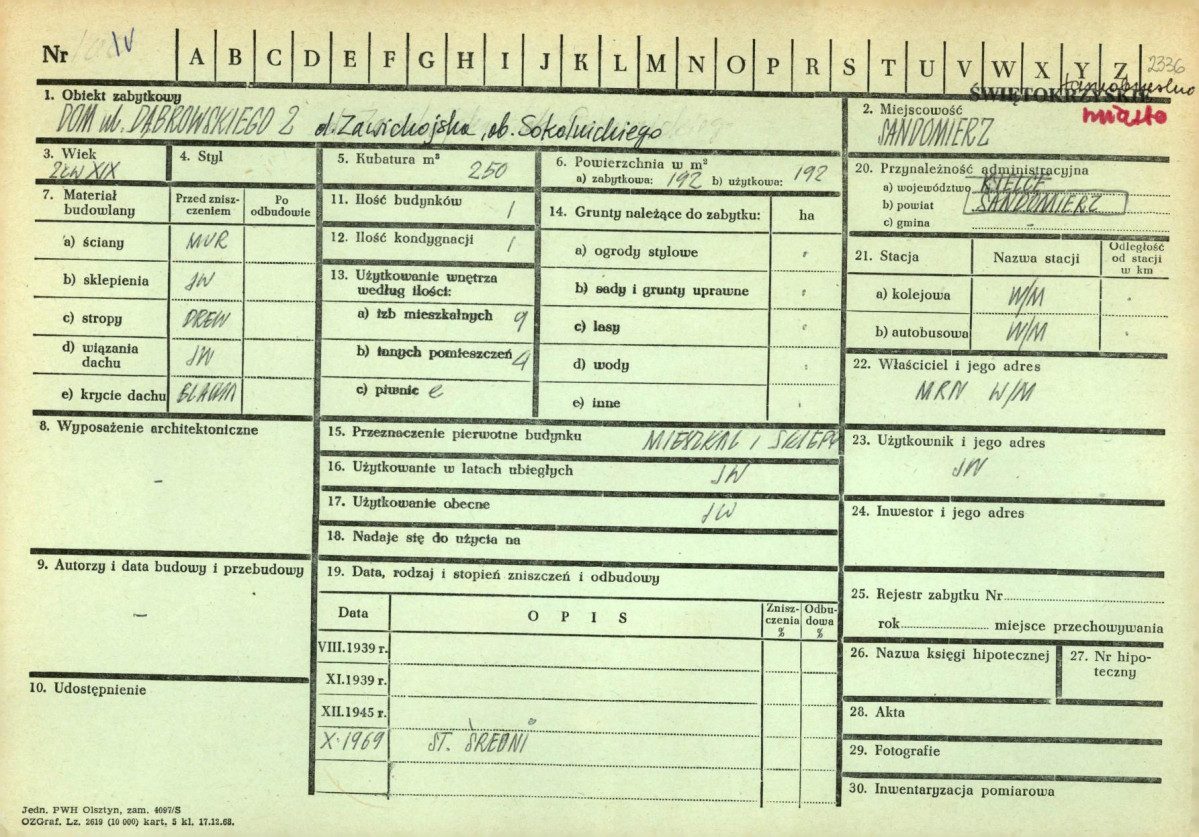 Nr IV A B C D E F G H I J K L M N O P R S T U V W X Y Z 2336
ŚWIĘTOKRZYSKIE
1. Obiekt zabytkowy
DOM ul. DĄBROWSKIEGO 2 d. Zawichojska, ob. Sokolnickiego
2. Miejscowość miasto
SANDOMIERZ
3. Wiek
2 ĆW XIX
4. Styl
5. Kubatura m³
250
6. Powierzchnia w m²
a) zabytkowa: 192 b) użytkowa: 192
20. Przynależność administracyjna
a) województwo KIELCE
b) powiat SANDOMIERZ
c) gmina -
7. Materiał budowlany
Przed zniszczeniem
Po odbudowie
a) ściany MUR
b) sklepienia JW
c) stropy DREW
d) wiązania dachu JW
e) krycie dachu BLACHA
11. Ilość budynków 1
12. Ilość kondygnacji 1
13. Użytkowanie wnętrza
według ilości:
a) izb mieszkalnych 9
b) innych pomieszczeń 4
c) piwnic
14. Grunty należące do zabytku: ha
a) ogrody stylowe
b) sady i grunty uprawne
c) lasy
d) wody
e) inne
21. Stacja Nazwa stacji Odległość od stacji w km
a) kolejowa W/M
b) autobusowa W/M
22. Właściciel i jego adres
MRN W/M
8. Wyposażenie architektoniczne
-
15. Przeznaczenie pierwotne budynku MIESZKAL I SKLEPY
16. Użytkowanie w latach ubiegłych JW
17. Użytkowanie obecne JW
18. Nadaje się do użycia na
23. Użytkownik i jego adres
JW
24. Inwestor i jego adres
9. Autorzy i data budowy i przebudowy
-
19. Data, rodzaj i stopień zniszczeń i odbudowy
Data OPIS Zniszczenia % Odbudowa %
VIII.1939 r.
XI.1939 r.
XII.1945 r.
X.1969 ST. ŚREDNI
25. Rejestr zabytku Nr
rok miejsce przechowywania
26. Nazwa księgi hipotecznej
27. Nr hipoteczny
10. Udostępnienie
28. Akta
29. Fotografie
30. Inwentaryzacja pomiarowa
Jedn. PWH Olsztyn, zam. 4097/S
OZGraf. Lz. 2619 (10 000) kart. 5 kl. 17.12.68.